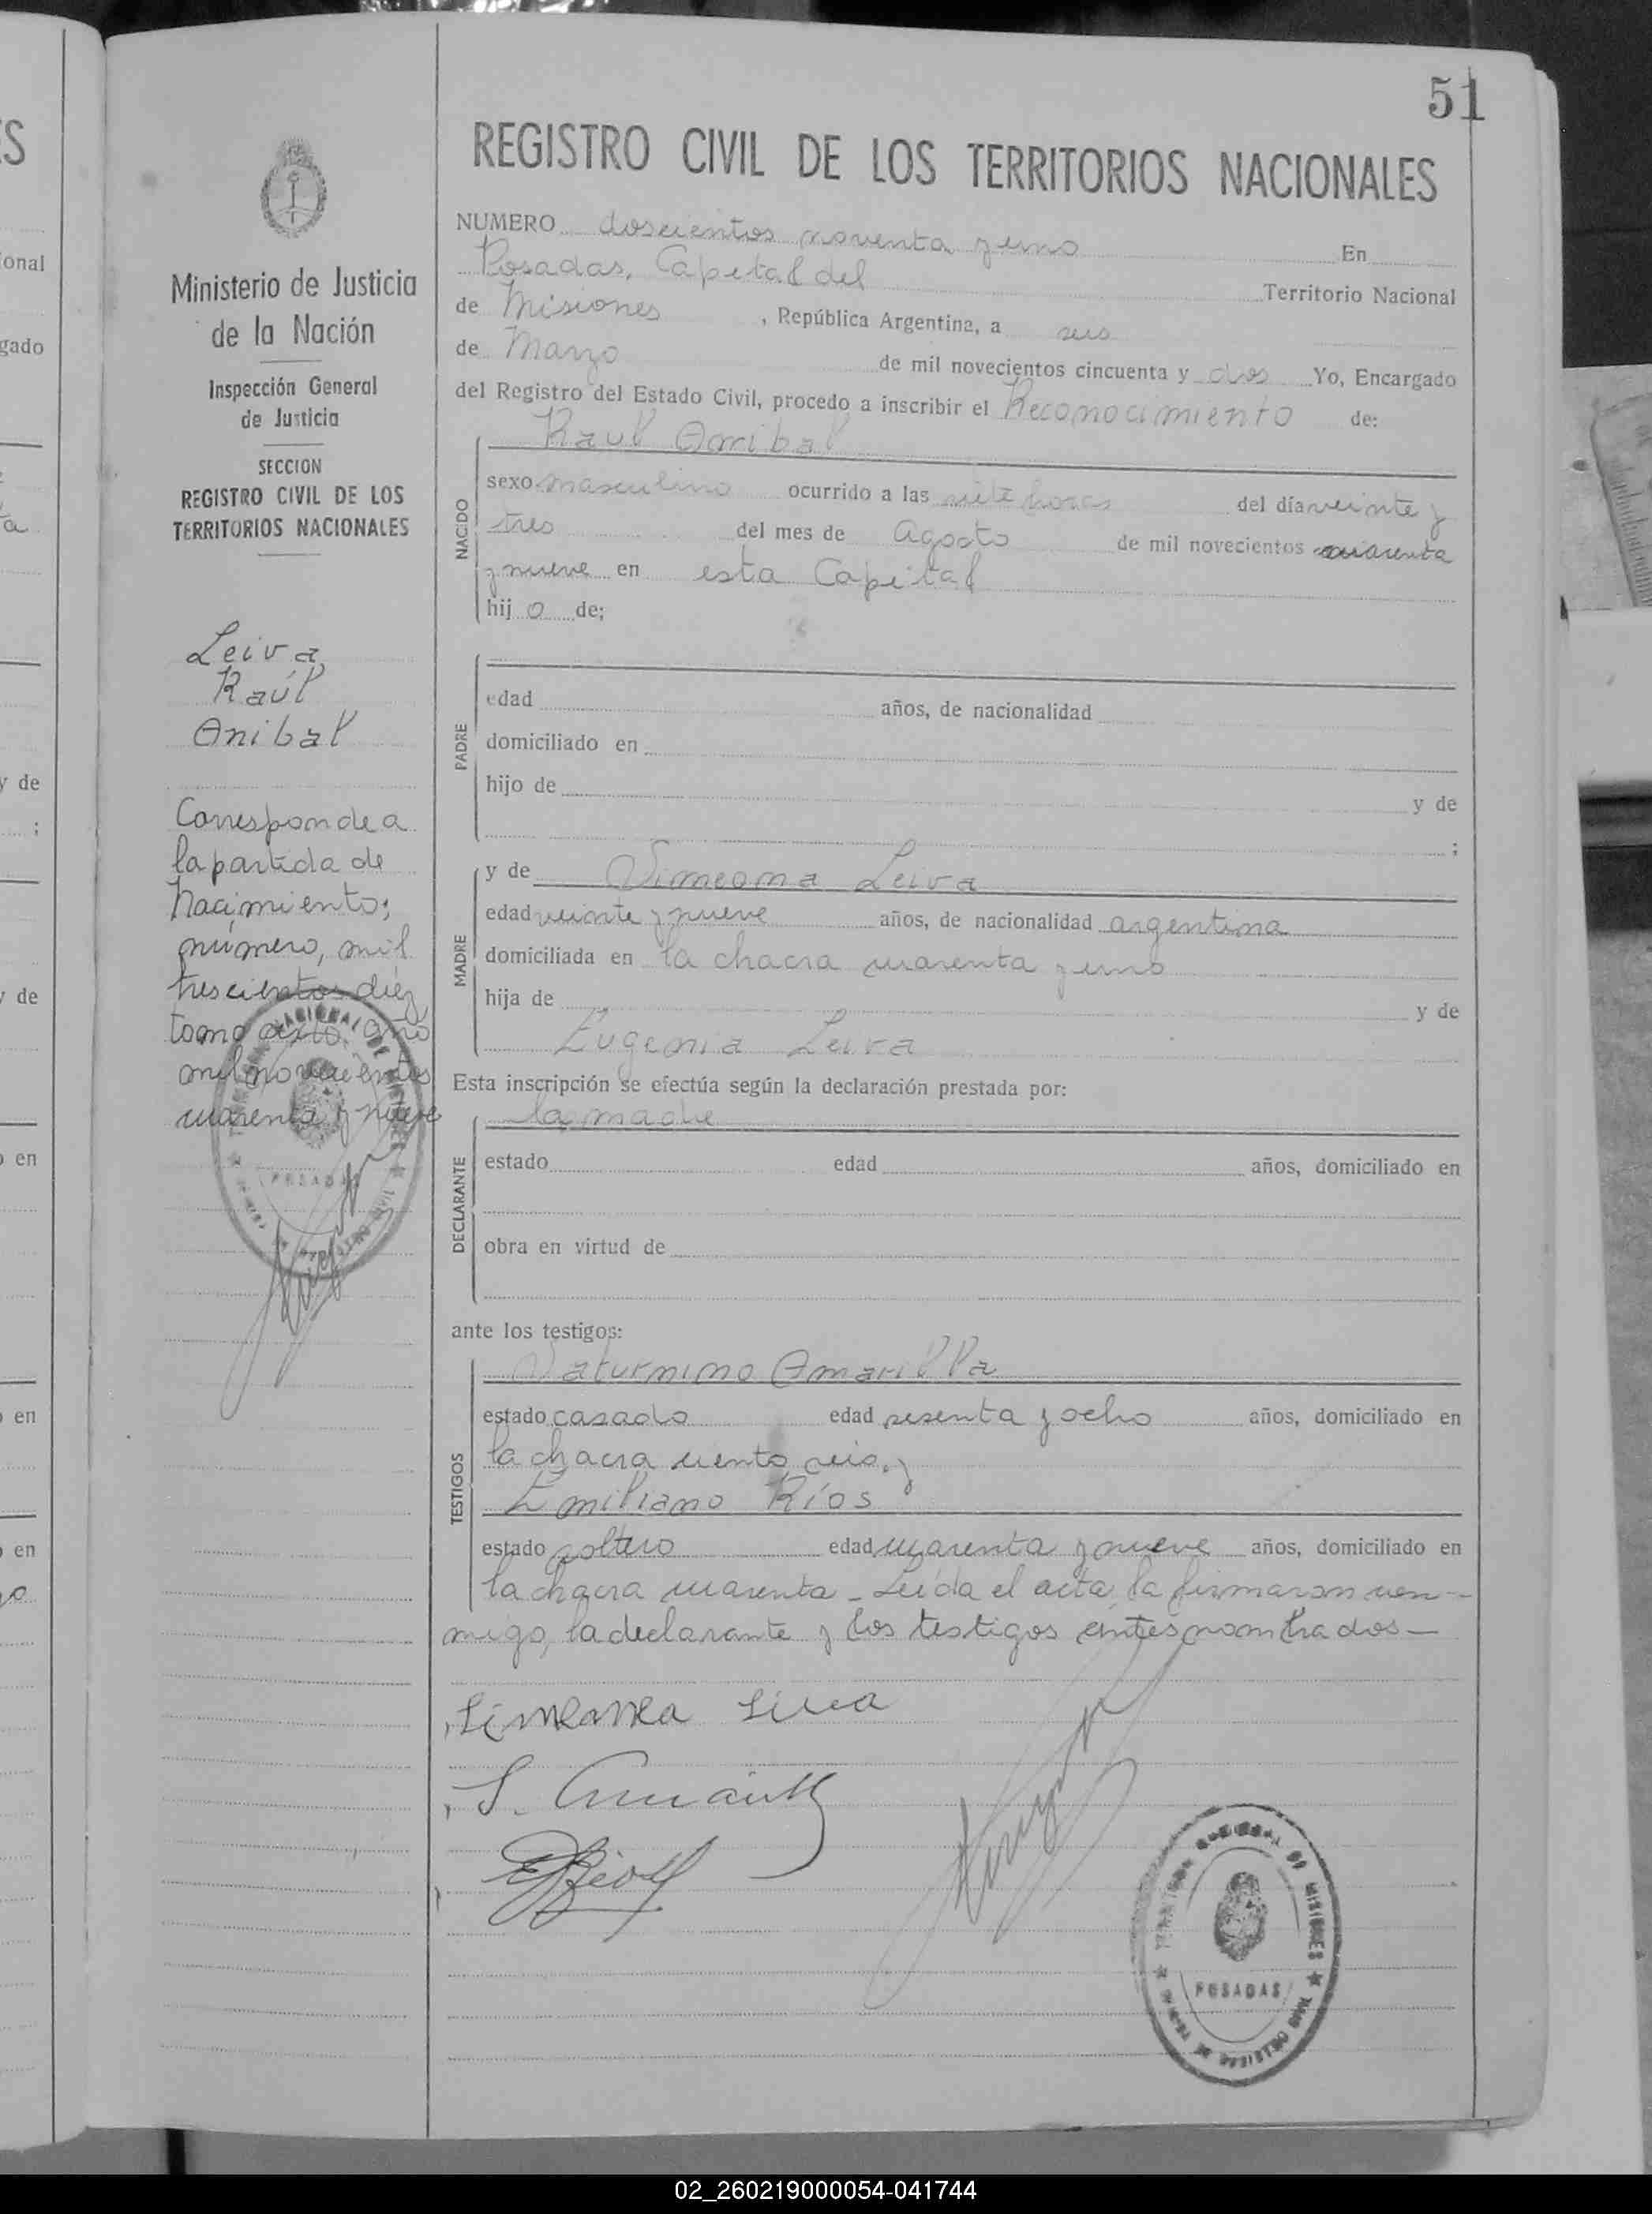 51
REGISTRO CIVIL DE LOS TERRITORIOS NACIONALES
NUMERO doscientos noventa y uno En
Posadas, Capital del Territorio Nacional
de Misiones , República Argentina, a seis
de Marzo de mil novecientos cincuenta y dos Yo, Encargado
del Registro del Estado Civil, procedo a inscribir el Reconocimiento de:
Raul Anibal
NACIDO
sexo masculino ocurrido a las siete horas del día veinte y
tres del mes de Agosto de mil novecientos cuarenta
y nueve en esta Capital
hij o de;
PADRE
edad años, de nacionalidad
domiciliado en
hijo de y de
;
MADRE
y de Simeona Leiva
edad veinte y nueve años, de nacionalidad argentina
domiciliada en la chacra cuarenta y uno
hija de y de
Eugenia Leiva
Esta inscripción se efectúa según la declaración prestada por:
la madre
DECLARANTE
estado edad años, domiciliado en
obra en virtud de
ante los testigos:
TESTIGOS
Saturnino Amarilla
estado casado edad sesenta y ocho años, domiciliado en
la chacra ciento seis, y
Emiliano Ríos
estado soltero edad cuarenta y nueve años, domiciliado en
la chacra cuarenta - Leida el acta, la firmaron con-
migo, la declarante y los testigos antes nombrados—
Simeona Leiva
POSADAS
Ministerio de Justicia
de la Nación
Inspección General
de Justicia
SECCION
REGISTRO CIVIL DE LOS
TERRITORIOS NACIONALES
Leiva,
Raúl
Anibal
Corresponde a
la partida de
Nacimiento;
número, mil
trescientos diez
tomo año
mil novecientos
cuarenta y nueve
POSADAS
ES
ional
gado
a
y de
;
y de
o en
o en
o en
02_260219000054-041744